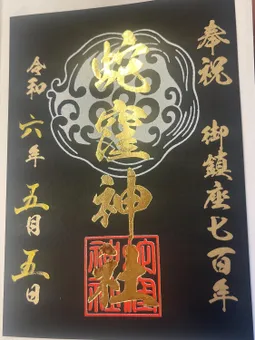 奉祝 御鎮座七百年
蛇窪神社
令和六年五月五日